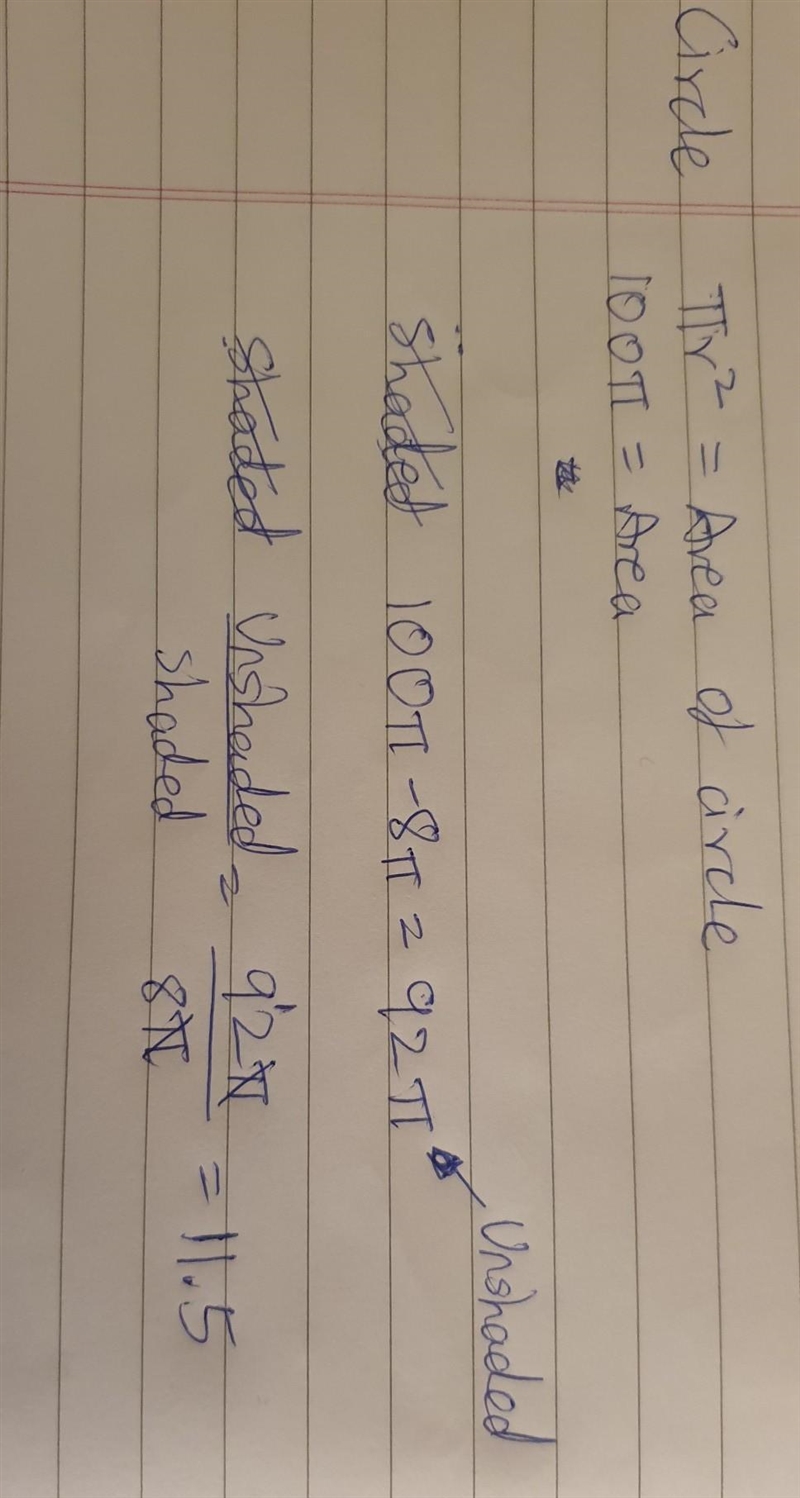 Circle πr² = Area of circle
100π = Area
Unshaded
Shaded 100π - 8π = 92π
Shaded Unshaded/shaded = 92π/8π = 11.5